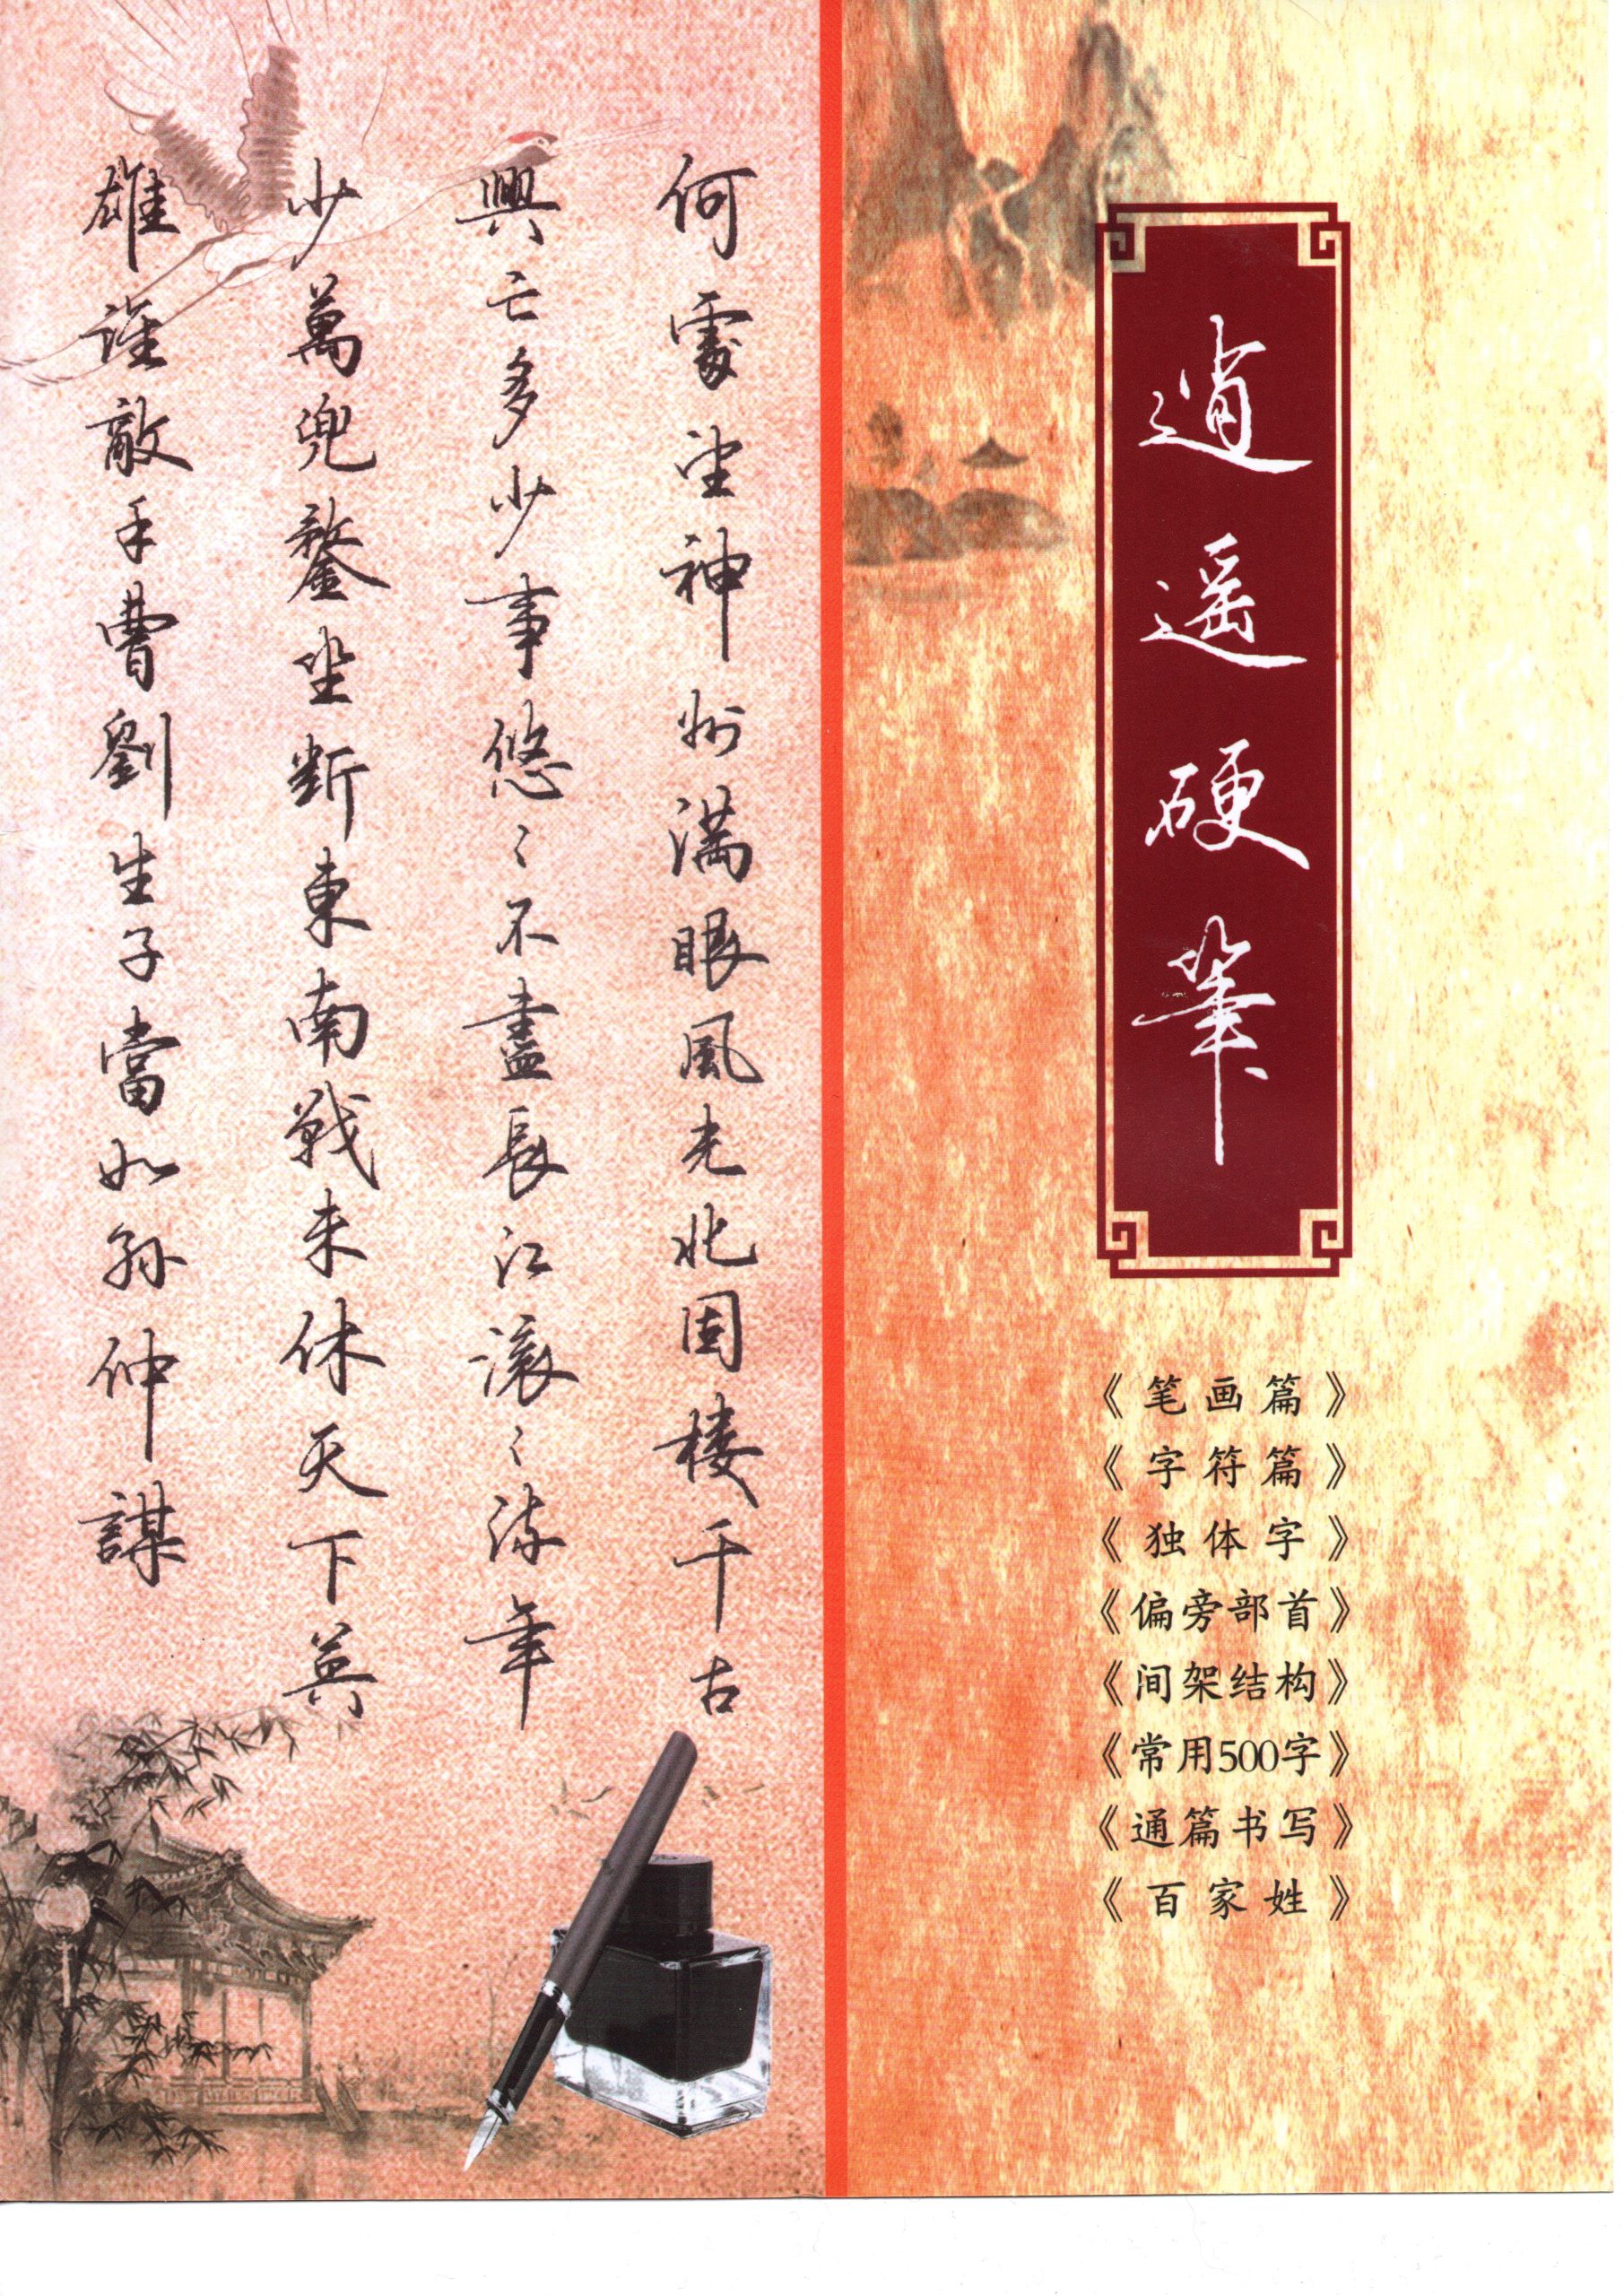 逍遥硬筆
《笔画篇》
《字符篇》
《独体字》
《偏旁部首》
《间架结构》
《常用500字》
《通篇书写》
《百家姓》
何處望神州滿眼風光北固樓千古
興亡多少事悠〻不盡長江滾〻流年
少萬兜鍪坐斷東南戰未休天下英
雄誰敵手曹劉生子當如孫仲謀